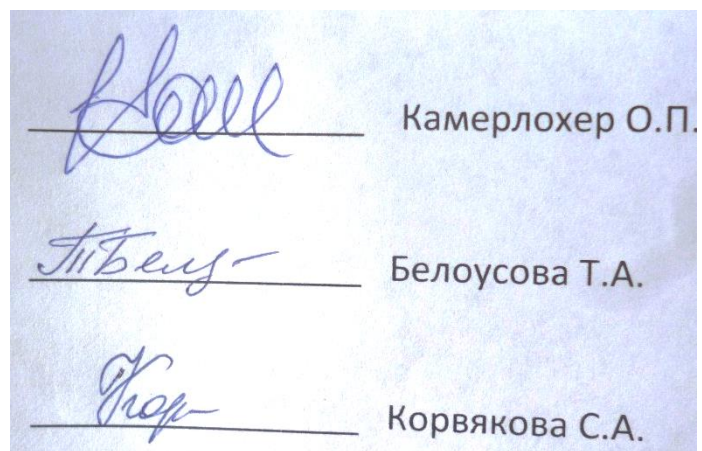 Камерлохер О.П.
Белоусова Т.А.
Корвякова С.А.